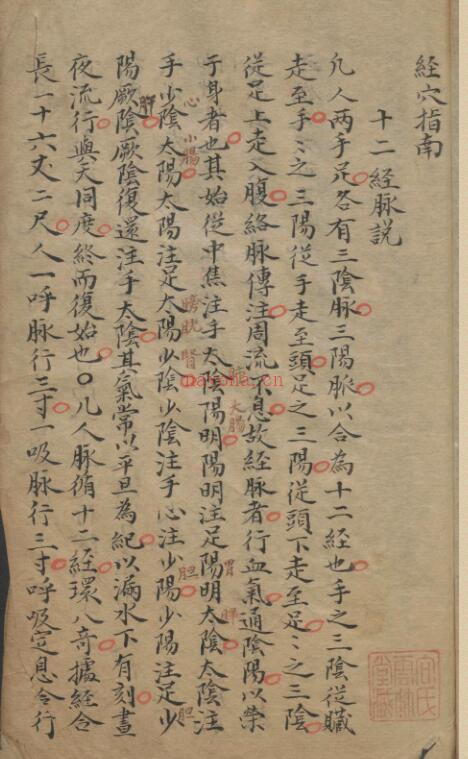 經穴指南
十二經脈說
凡人两手足各有三陰脈三陽脈以合為十二經也手之三陰從臟
走至手〻之三陽從手走至頭足之三陽從頭下走至足〻之三陰
從足上走入腹絡脈傳注周流不息故經脈者行血氣通陰陽以榮
于身者也其始從中焦注手太陰陽明陽明注足陽明太陰太陰注
手少陰太陽太陽注足太陽少陰少陰注手心注少陽少陽注足少
陽厥陰厥陰復還注手太陰其氣常以平旦為紀以漏水下有刻晝
夜流行與天同度終而復始也○凡人脈循十二經環八奇據經合
長一十六丈二尺人一呼脈行三寸一吸脈行三寸呼吸定息合行
大腸
胃
脾
心
小腸
膀胱
腎
胆
胆